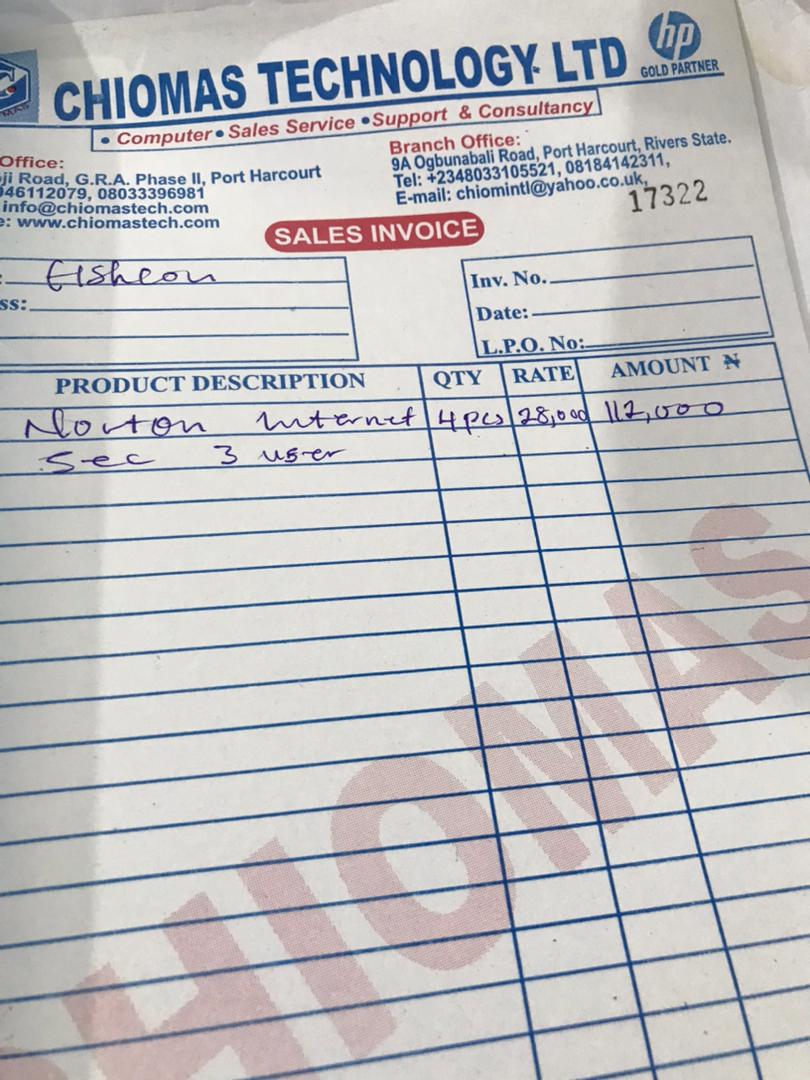 CHIOMAS TECHNOLOGY LTD
hp
GOLD PARTNER
• Computer • Sales Service • Support & Consultancy
Office:
ji Road, G.R.A. Phase II, Port Harcourt
046112079, 08033396981
info@chiomastech.com
e: www.chiomastech.com
Branch Office:
9A Ogbunabali Road, Port Harcourt, Rivers State.
Tel: +2348033105521, 08184142311,
E-mail: chiomintl@yahoo.co.uk,
17322
SALES INVOICE
ss:
Inv. No.
Date:
L.P.O. No:
PRODUCT DESCRIPTION QTY RATE AMOUNT ₦
Norton Internet 4pcs 28,000 112,000
Sec 3 user
CHIOMAS